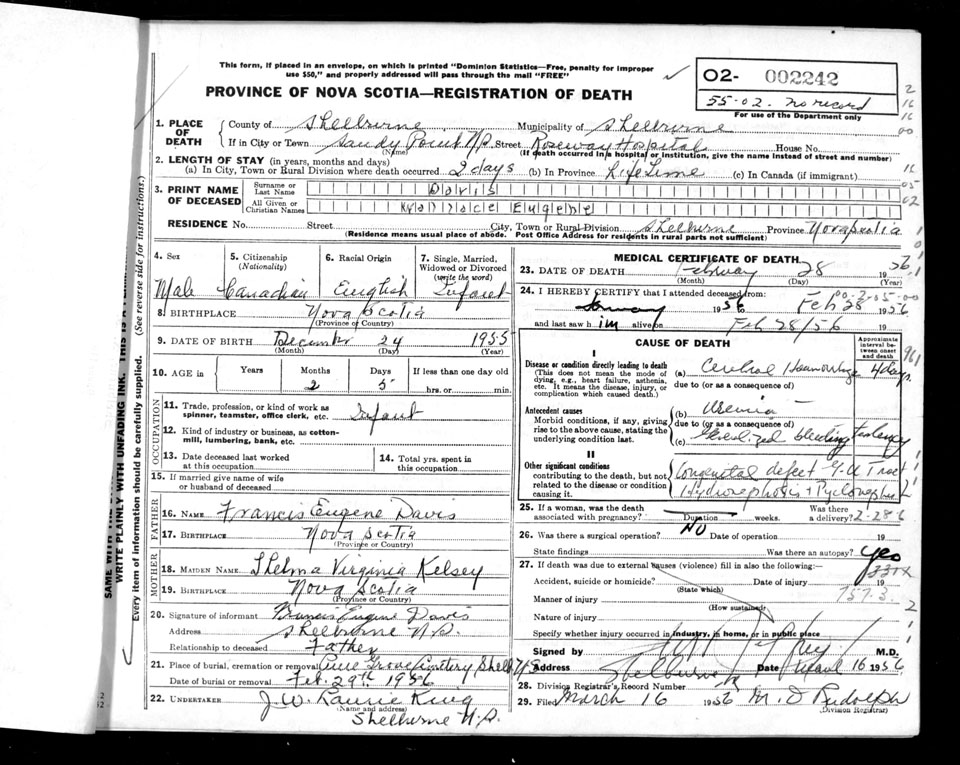 This form, if placed in an envelope, on which is printed "Dominion Statistics—Free, penalty for improper
use $50," and properly addressed will pass through the mail "FREE"
PROVINCE OF NOVA SCOTIA—REGISTRATION OF DEATH
O2- 002242
55-02. no record
For use of the Department only
1. PLACE OF DEATH
County of Shelburne Municipality of Shelburne
If in City or Town Sandy Point N.S. Street Roseway Hospital House No.
(Name) (If death occurred in a hospital or institution, give the name instead of street and number)
2. LENGTH OF STAY (in years, months and days)
(a) In City, Town or Rural Division where death occurred 2 days (b) In Province LifeTime (c) In Canada (if immigrant)
3. PRINT NAME OF DECEASED
Surname or Last Name Davis
All Given or Christian Names Eugene
RESIDENCE No. Street City, Town or Rural Division Shelburne Province Nova Scotia
(Residence means usual place of abode. Post Office Address for residents in rural parts not sufficient)
4. Sex Male
5. Citizenship (Nationality) Canadian
6. Racial Origin English
7. Single, Married, Widowed or Divorced (write the word) Infant
8. BIRTHPLACE Nova Scotia
(Province or Country)
9. DATE OF BIRTH December 24 1955
(Month) (Day) (Year)
10. AGE in Years Months 2 Days 5 If less than one day old hrs. or min.
OCCUPATION
11. Trade, profession, or kind of work as spinner, teamster, office clerk, etc. Infant
12. Kind of industry or business, as cotton-mill, lumbering, bank, etc.
13. Date deceased last worked at this occupation
14. Total yrs. spent in this occupation
15. If married give name of wife or husband of deceased
FATHER
16. NAME Francis Eugene Davis
17. BIRTHPLACE Nova Scotia
(Province or Country)
MOTHER
18. MAIDEN NAME Thelma Virginia Kelsey
19. BIRTHPLACE Nova Scotia
(Province or Country)
20. Signature of informant Francis Eugene Davis
Address Shelburne N.S.
Relationship to deceased Father
21. Place of burial, cremation or removal Pine Grove Cemetery Shelb N S
Date of burial or removal Feb. 29th 1956
22. UNDERTAKER J. W. Laurie King
(Name and address)
Shelburne N.S.
MEDICAL CERTIFICATE OF DEATH
23. DATE OF DEATH February 28 1956
(Month) (Day) (Year)
24. I HEREBY CERTIFY that I attended deceased from:
January 1956 Feb 28 1956
and last saw him alive on Feb 28/56 19
CAUSE OF DEATH
Approximate interval between onset and death
I
Disease or condition directly leading to death
(This does not mean the mode of dying, e.g., heart failure, asthenia, etc. It means the disease, injury, or complication which caused death.)
(a) Cerebral Haemorrhage 4 days
due to (or as a consequence of)
Antecedent causes
Morbid conditions, if any, giving rise to the above cause, stating the underlying condition last.
(b) Uremia
due to (or as a consequence of)
(c) Generalized bleeding tendency
II
Other significant conditions
contributing to the death, but not related to the disease or condition causing it.
Congenital defect G.U Tract
Hydronephrosis +
25. If a woman, was the death associated with pregnancy? Duration weeks. Was there a delivery? 2-28-6
26. Was there a surgical operation? No Date of operation
State findings Was there an autopsy? Yes
27. If death was due to external causes (violence) fill in also the following:—
Accident, suicide or homicide? Date of injury 19
(State which)
757.3
Manner of injury
(How sustained)
Nature of injury
Specify whether injury occurred in industry, in home, or in public place
Signed by M.D.
Address Shelburne Date March 16 1956
28. Division Registrar's Record Number
29. Filed March 16 1956 M. D Rudolph
(Division Registrar)
WRITE PLAINLY WITH UNFADING INK. THIS IS A
Every item of information should be carefully supplied. (See reverse side for instructions.)